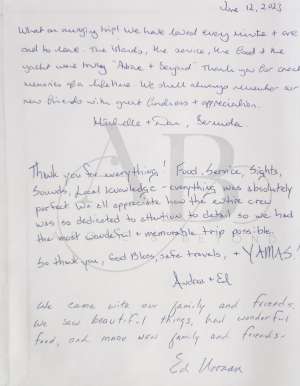 June 12, 2023
What an amazing trip! We have loved every minute + are
sad to leave. The islands, the service, the food + the
yacht were truly "Above + Beyond" Thank you for
memories of a lifetime. We shall always remember our
new friends with great fondness + appreciation.
Michelle + Dan, Bermuda
Thank you for everything! Food, Service, Sights,
Sounds, Local knowledge - everything was absolutely
perfect We all appreciate how the entire crew
was so dedicated to attention to detail so we had
the most wonderful + memorable trip possible.
So thank you, God Bless, safe travels, + YAMAS!
Andrea + Ed
We came with our family and friends.
We saw beautiful things, had wonderful
food, and made new family and friends.
Ed